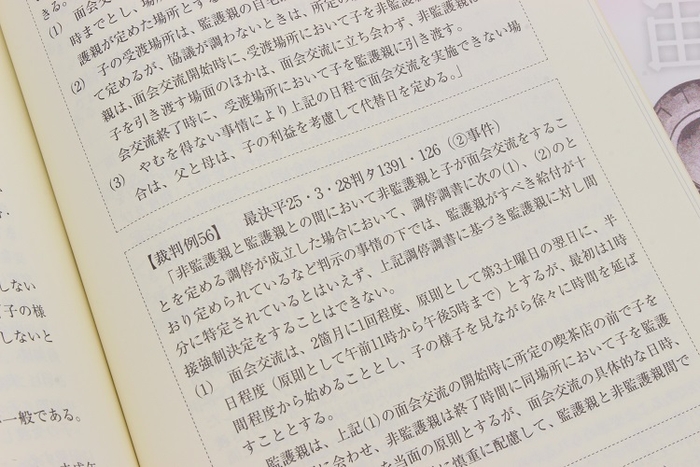 きる。
(1) 面会交
時までとし、場
護親が定めた場所とす
(2) 子の受渡場所は、監護親の自宅
て定めるが、協議が調わないときは、所定の
親は、面会交流開始時に、受渡場所において子を非監護
子を引き渡す場面のほかは、面会交流に立ち会わず、非監護
会交流終了時に、受渡場所において子を監護親に引き渡す。
(3) やむを得ない事情により上記の日程で面会交流を実施できない場
合は、父と母は、子の利益を考慮して代替日を定める。」
【裁判例56】 最決平25・3・28判タ1391・126（②事件）
「非監護親と監護親との間において非監護親と子が面会交流をするこ
とを定める調停が成立した場合において、調停調書に次の(1)、(2)のと
おり定められているなど判示の事情の下では、監護親がすべき給付が十
分に特定されているとはいえず、上記調停調書に基づき監護親に対し間
接強制決定をすることはできない。
(1) 面会交流は、2箇月に1回程度、原則として第3土曜日の翌日に、半
日程度（原則として午前11時から午後5時まで）とするが、最初は1時
間程度から始めることとし、子の様子を見ながら徐々に時間を延ば
すこととする。
監護親は、上記(1)の面会交流の開始時に所定の喫茶店の前で子を
に会わせ、非監護親は終了時間に同場所において子を監護
を当面の原則とするが、面会交流の具体的な日時、
に慎重に配慮して、監護親と非監護親間で
しない
子の様
しないと
一般である。